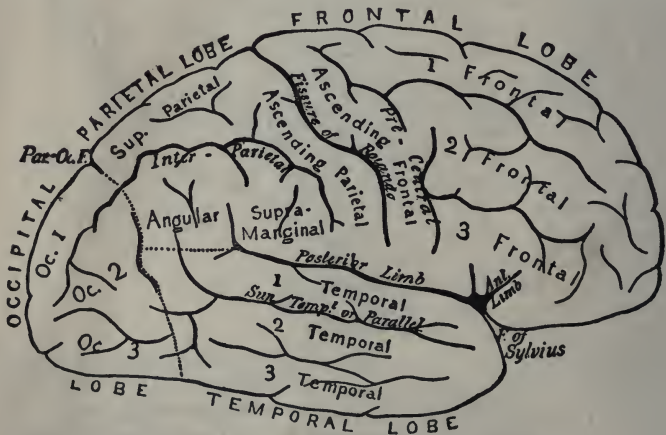 FRONTAL LOBE
PARIETAL LOBE
OCCIPITAL
LOBE
TEMPORAL LOBE
1 Frontal
2 Frontal
3 Frontal
Pre-Central
Ascending Frontal
Fissure of Rolando
Ascending Parietal
Sup. Parietal
Par-Oc. F.
Inter-Parietal
Angular
Supra-Marginal
Oc. 1
Oc. 2
Oc 3
Posterior Limb
Ant. Limb
F. of Sylvius
1 Temporal
Temp! or Parallel
2 Temporal
3 Temporal